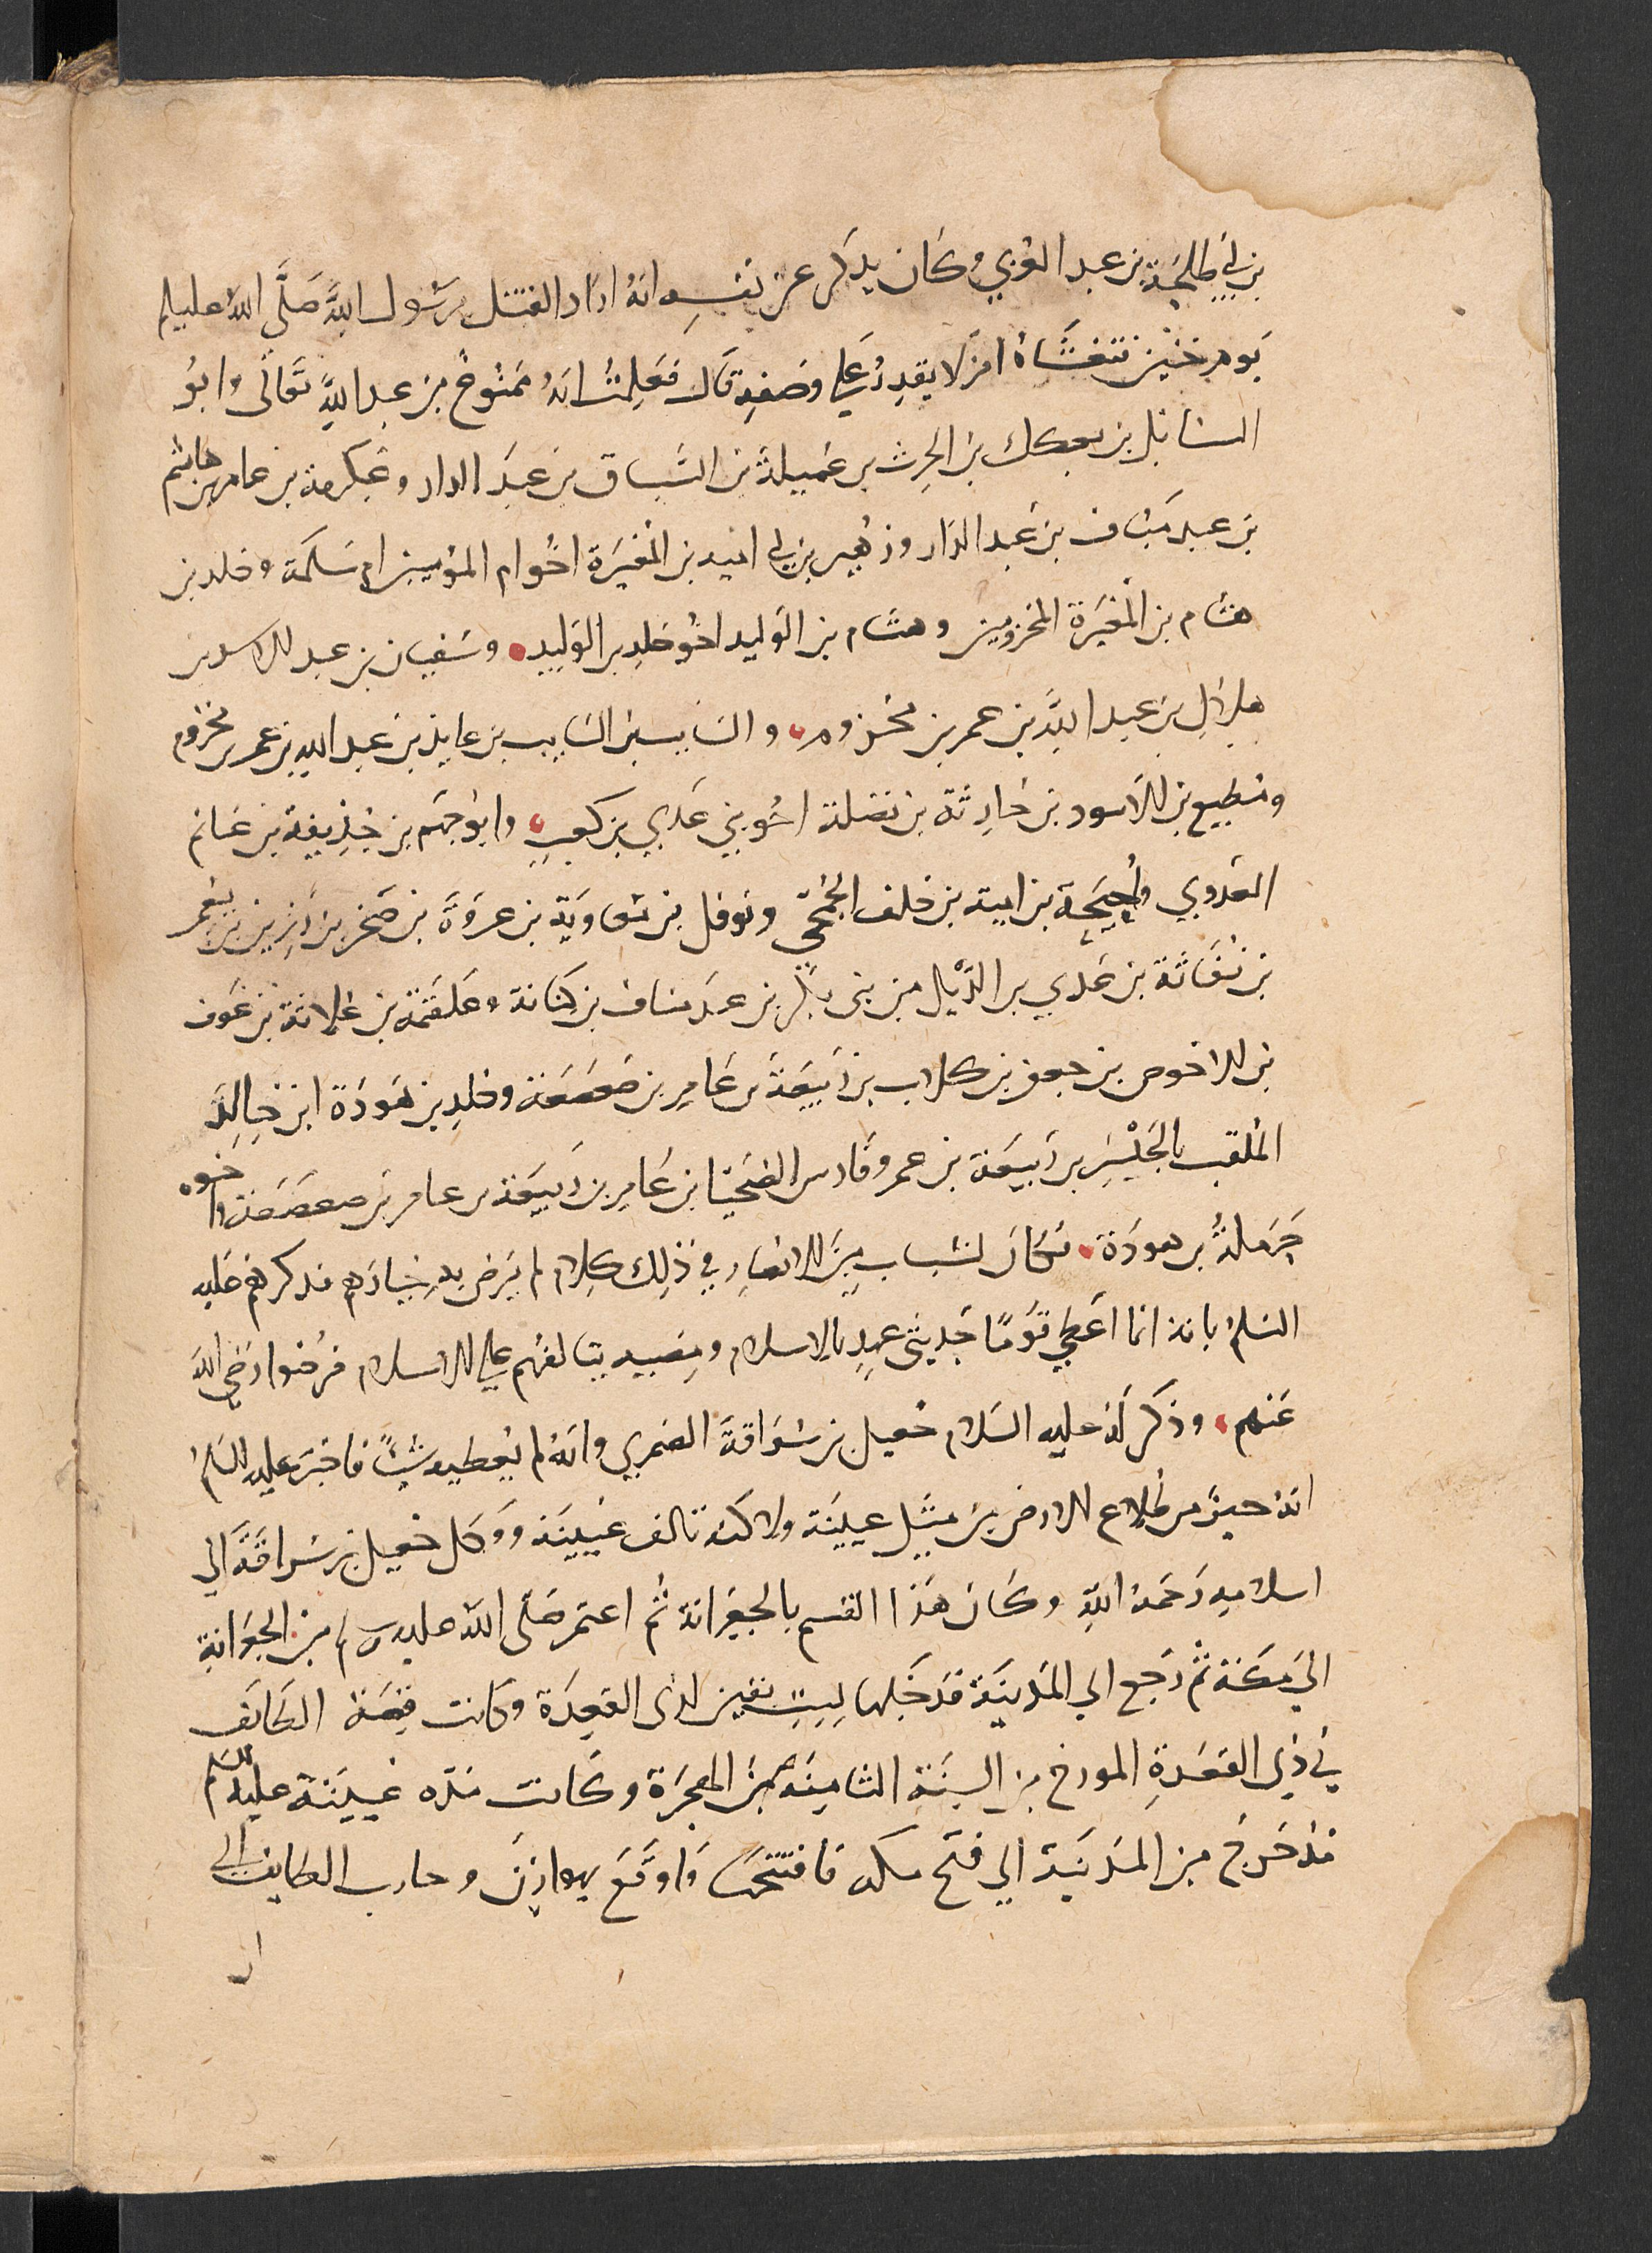 بن ابي طلحة بن عبد العزي وكان يذكر عن نفسه انه اراد الفتك برسول الله صلى الله عليه وسلم
يوم حنين فتغشاه امر لا يقدر على وصفه قال فعلمت انه ممنوع من عبد الله تعالى وابو
السنابل بن بعكك بن الحرث بن عميلة بن السباق بن عبد الدار وعكرمة بن عامر بن هاشم
بن عبد مناف بن عبد الدار وزهير بن ابي امية بن المغيرة اخو ام المؤمنين ام سلمة وخلد بن
هشام بن المغيرة المخزوميين وهشام بن الوليد اخو خلد بن الوليد وسفيان بن عبد الاسد بن
هلال بن عبد الله بن عمر بن مخزوم والسايب بن السايب بن عايذ بن عبد الله بن عمر بن مخزوم
ومطيع بن الاسود بن حارثة بن نضلة اخو بني عدي بن كعب وابو جهم بن حذيفة بن غانم
العدوي واحيحة بن امية بن خلف الجمحي ونوفل بن معاوية بن عروة بن صخر بن رزين بن يعمر
بن نفاثة بن عدي بن الديل من بني بكر بن عبد مناف بن كنانة وعلقمة بن علاثة بن عوف
بن الاحوص بن جعفر بن كلاب بن ربيعة بن عامر بن صعصعة وخلد بن هوذة ابن خالد
الملقب بالحليس بن ربيعة بن عمرو فارس الضحيا بن عامر بن ربيعة بن عامر بن صعصعة واخوه
حرملة بن هوذة فكان لشباب من الانصار في ذلك كلام لم يرض به خيارهم فذكرهم عليه
السلام بانه انما اعطي قوما حديثي عهد بالاسلام ومصيبة يتالفهم على الاسلام فرضوا رضي الله
عنهم وذكر له عليه السلام جعيل بن سراقة الضمري وانه لم يعطيه شيئا فاخبر عليه السلم
انه خير من طلاع الارض من مثل عيينة ولاكنه تالف عيينة ووكل جعيل بن سراقة الي
اسلامه رحمه الله وكان هذا القسم بالجعرانة ثم اعتمر صلى الله عليه وسلم من الجعرانة
الي مكة ثم رجع الي المدينة فدخلها لست بقين لذى القعدة وكانت قصة الطايف
في ذي القعدة المورخ من السنة الثامنة من الهجرة وكانت مدة غيبته عليه السلم
مذ خرج من المدينة الي فتح مكة فافتتحها واوقع بهوازن وحارب الطايف الي
ان